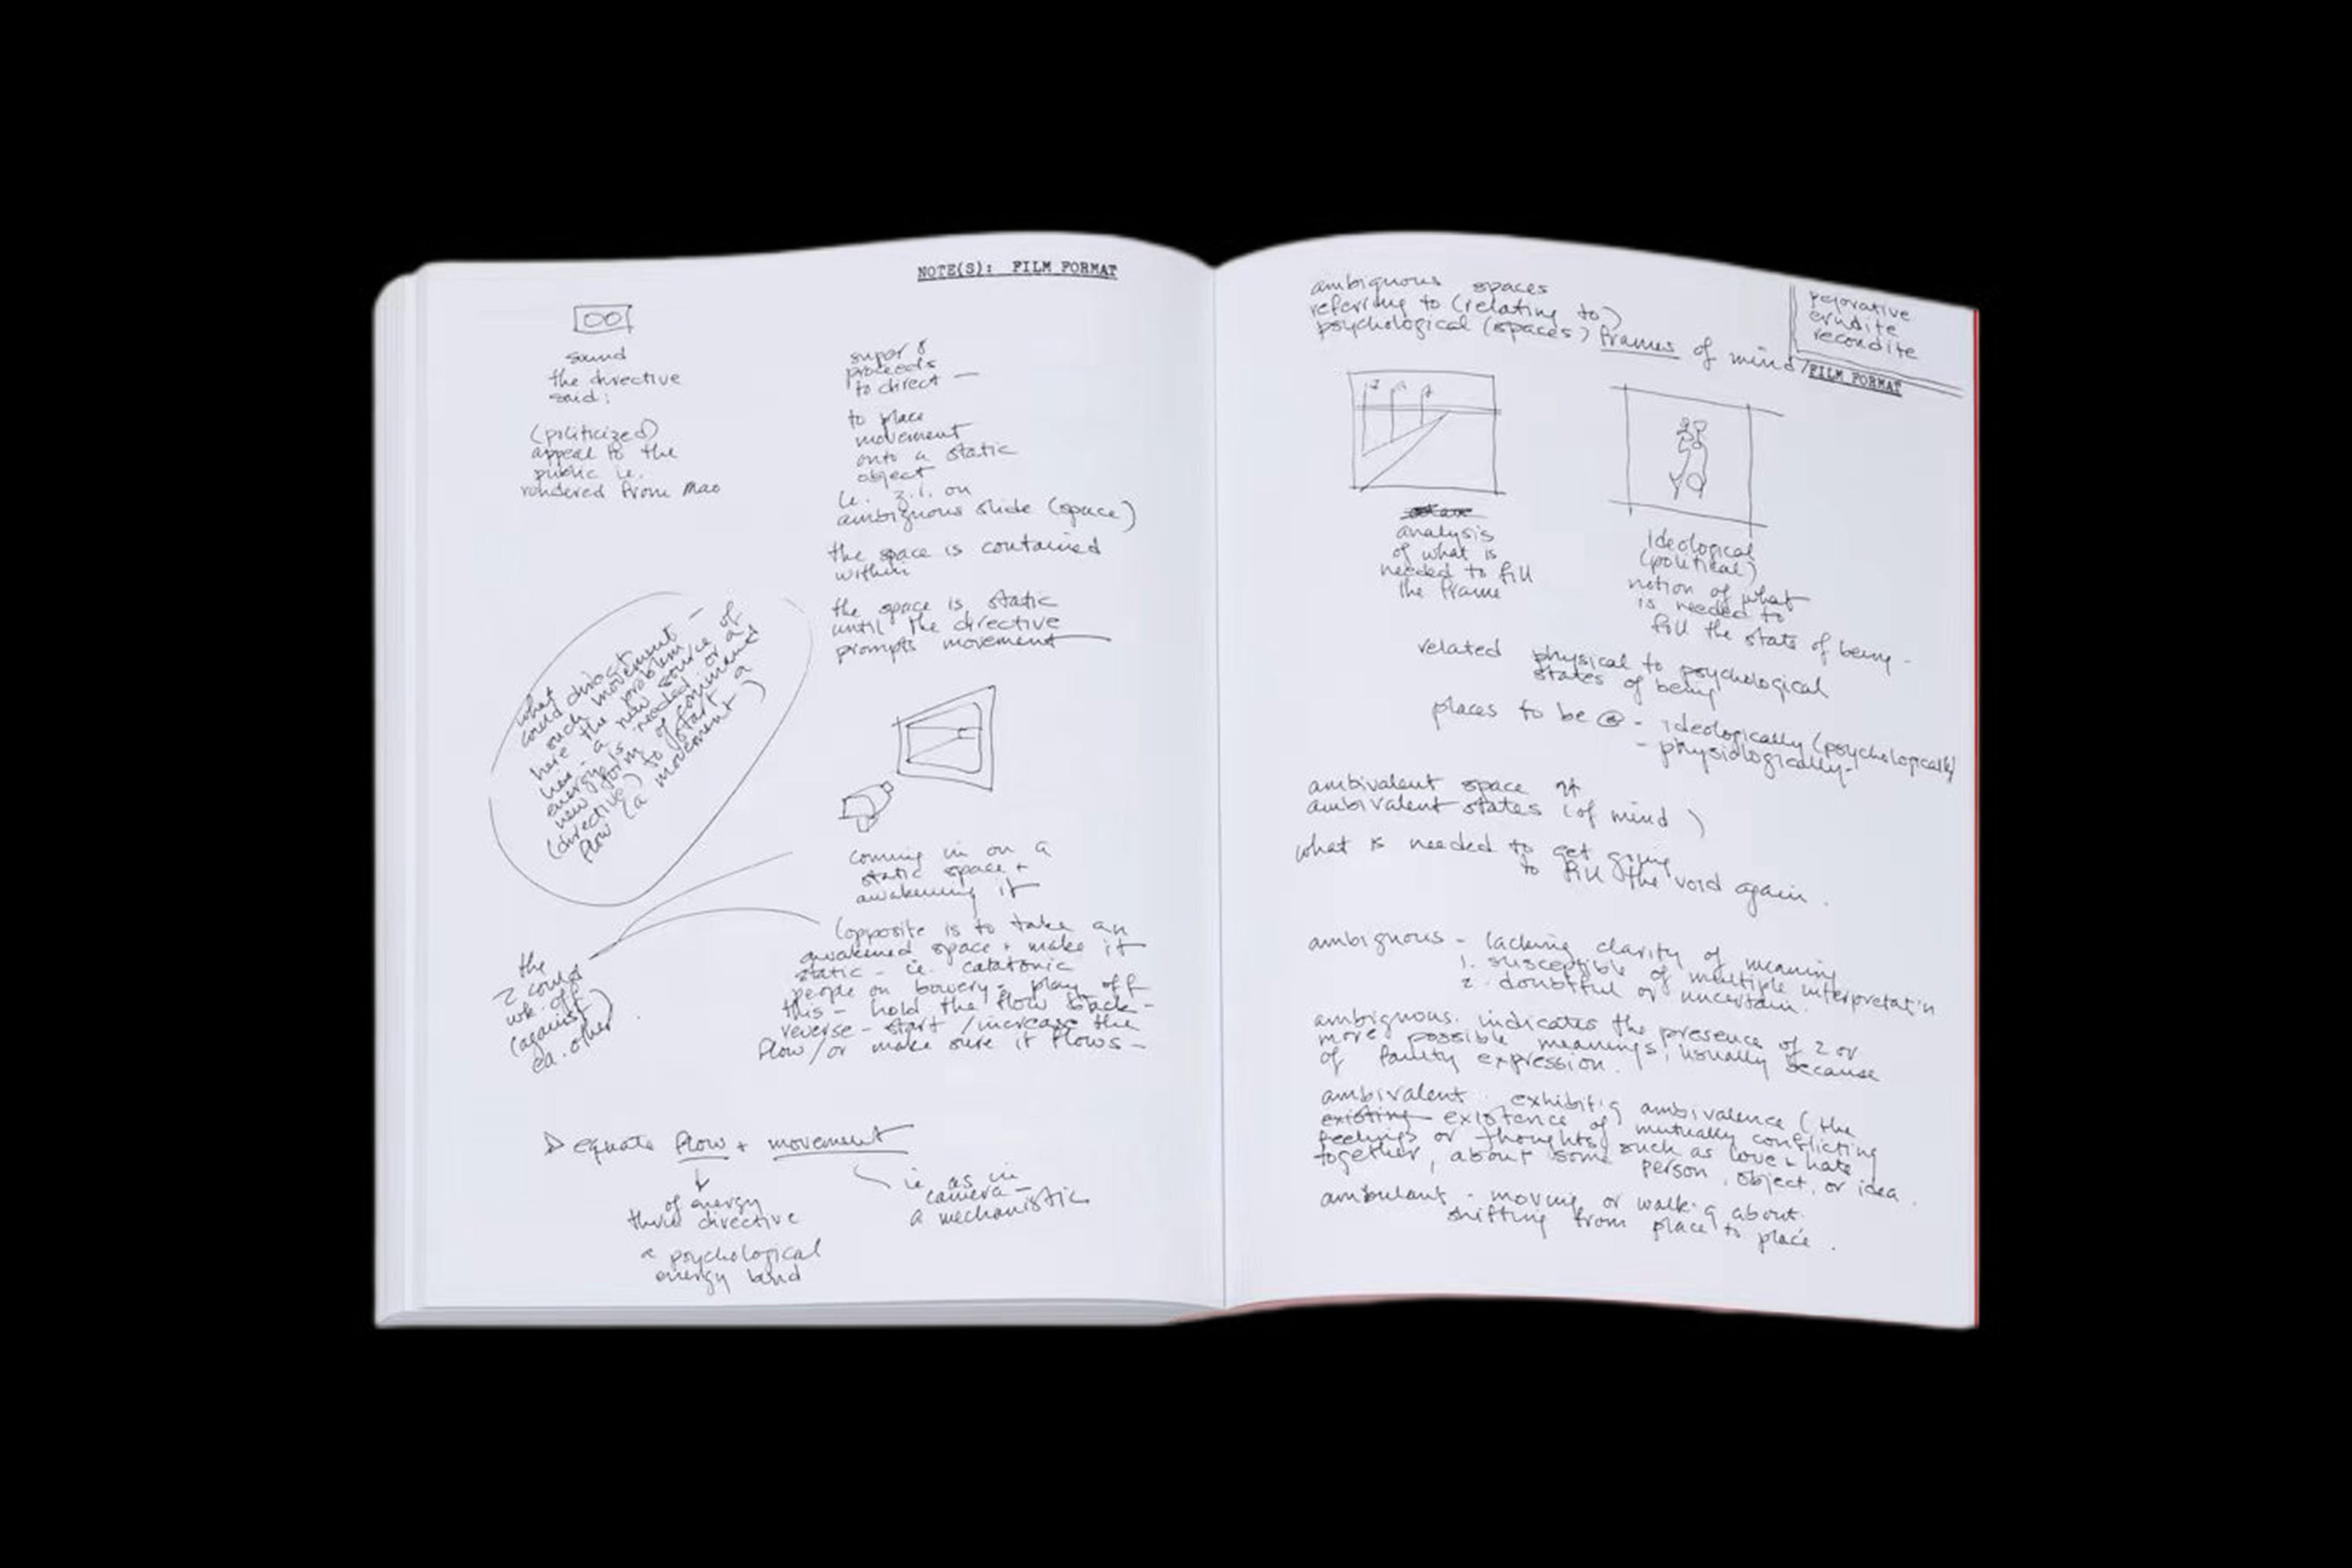 NOTE(S): FILM FORMAT
sound
the directive
said:
(politicized)
appeal to the
public i.e.
rendered from Mao
super 8
proceeds
to direct —
to place
movement
onto a static
object
i.e. z.i. on
ambiguous slide (space)
the space is contained
within
the space is static
until the directive
prompts movement
what
could direct
such movement – of
here the problem
lies – a new source of
energy is needed or a
new form of command
(directive) to start a
flow (a movement)
coming in on a
static space +
awakening it
(opposite is to take an
awakened space + make it
static – ie. catatonic
people on bowery – play off
this – hold the flow back –
reverse – start / increase the
flow / or make sure it flows –
the
2 could
wk. off
(against)
ea. other
equate flow + movement
of energy
thru directive
a psychological
energy band
ie as in
camera –
a mechanistic
ambiguous spaces
referring to (relating to)
psychological (spaces) frames of mind/
pejorative
erudite
recondite
FILM FORMAT
analysis
of what is
needed to fill
the frame
ideological
(political)
notion of what
is needed to
fill the state of being –
related physical to psychological
states of being
places to be @ – ideologically (psychologically)
– physiologically –
ambivalent space
ambivalent states (of mind)
what is needed to get going
to fill the void again.
ambiguous – lacking clarity of meaning
1. susceptible of multiple interpretat'n
2. doubtful or uncertain.
ambiguous. indicates the presence of 2 or
more possible meanings, usually because
of faulty expression.
ambivalent. exhibiti'g ambivalence (the
existing existence of mutually conflicting
feelings or thoughts, such as love + hate
together, about some person, object, or idea.
ambulant – moving or walk'g about.
shifting from place to place.